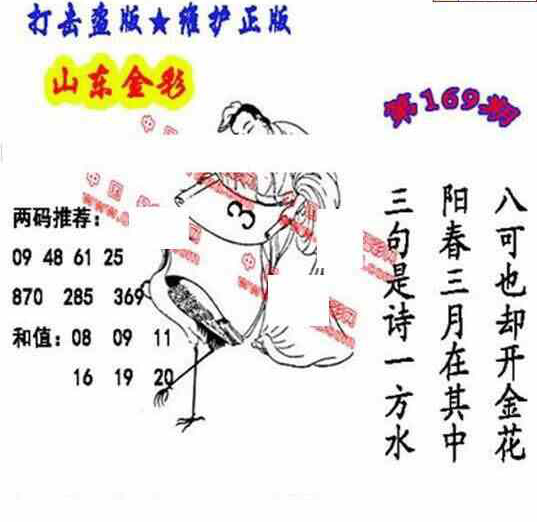 打击盗版★维护正版
山东金彩
第169期
两码推荐:
09 48 61 25
870 285 369
和值: 08 09 11
16 19 20
3
八可也却开金花
阳春三月在其中
三句是诗一方水